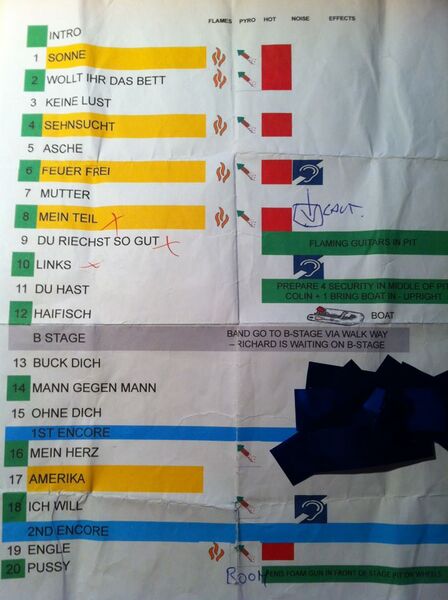 FLAMES PYRO HOT NOISE EFFECTS
INTRO
1 SONNE
2 WOLLT IHR DAS BETT
3 KEINE LUST
4 SEHNSUCHT
5 ASCHE
6 FEUER FREI
7 MUTTER
8 MEIN TEIL
9 DU RIECHST SO GUT
FLAMING GUITARS IN PIT
10 LINKS
11 DU HAST
PREPARE 4 SECURITY IN MIDDLE OF PIT
COLIN + 1 BRING BOAT IN - UPRIGHT
12 HAIFISCH
BOAT
B STAGE
BAND GO TO B-STAGE VIA WALK WAY
– RICHARD IS WAITING ON B-STAGE
13 BUCK DICH
14 MANN GEGEN MANN
15 OHNE DICH
1ST ENCORE
16 MEIN HERZ
17 AMERIKA
18 ICH WILL
2ND ENCORE
19 ENGLE
20 PUSSY
FOAM GUN IN FRONT OF STAGE PIT ON WHEELS